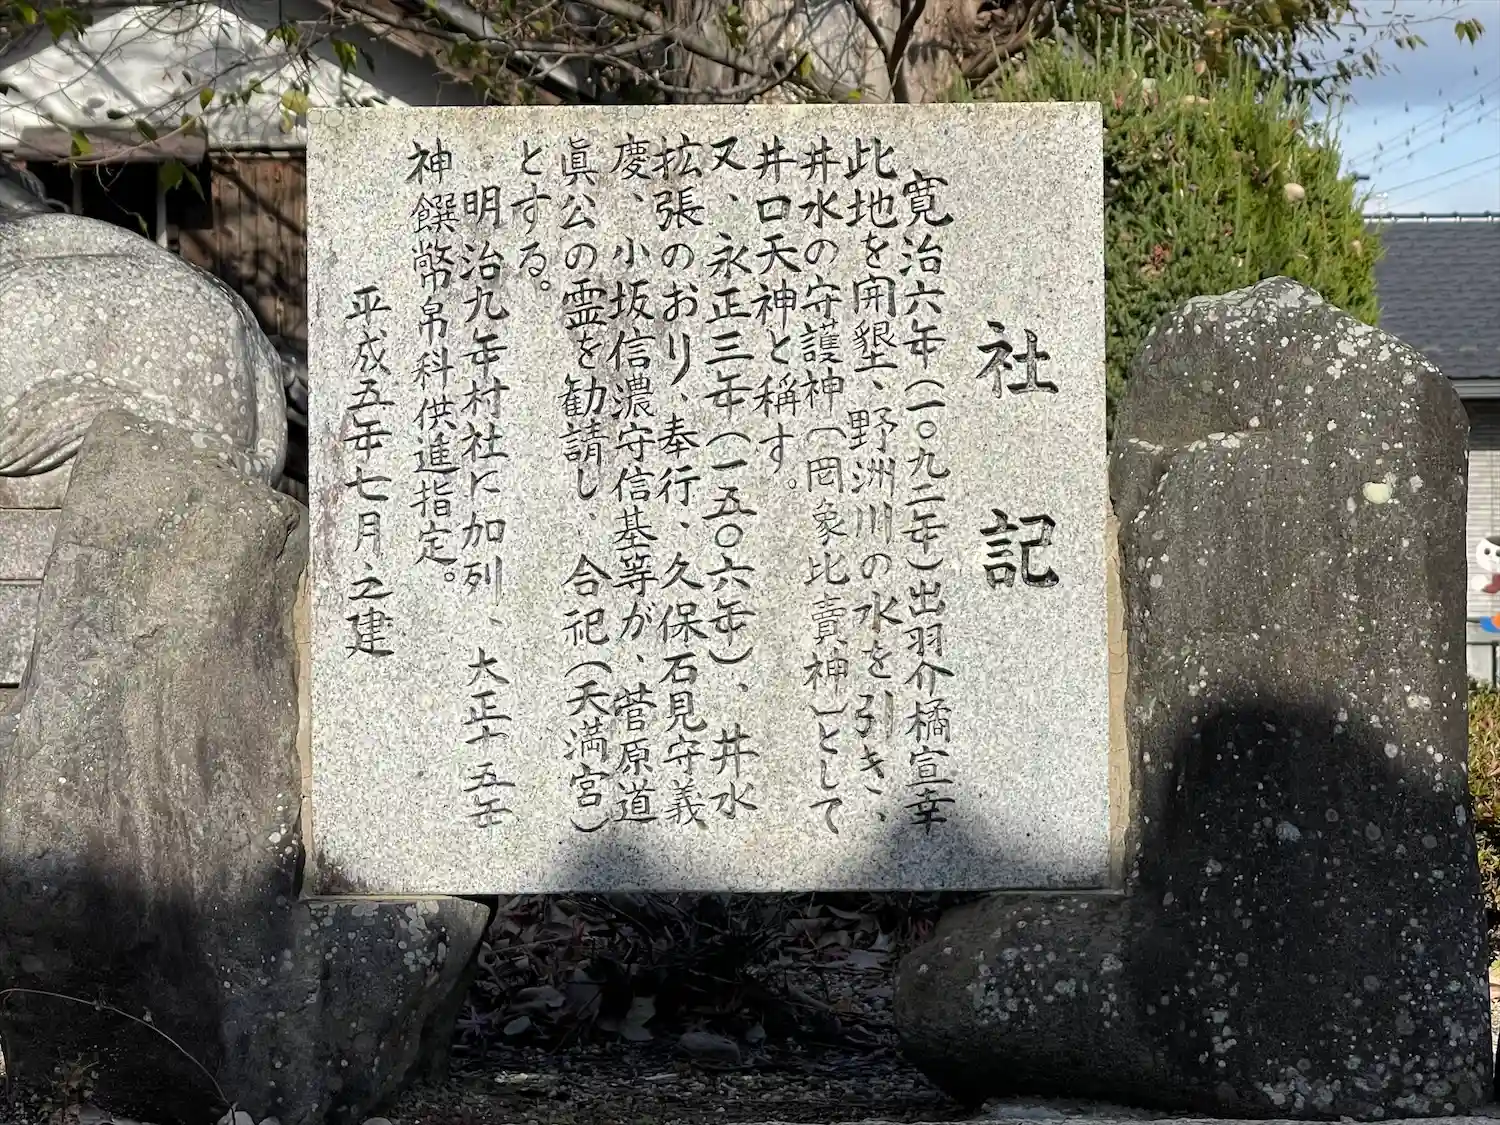 社記
寛治六年（一〇九二年）出羽介橘宣幸
此地を開墾、野洲川の水を引き、
井水の守護神〔罔象比賣神〕として
井口天神と称す。
又、永正三年（一五〇六年）、井水
拡張のおり、奉行、久保石見守義
慶、小坂信濃守信基等が、菅原道
眞公の霊を勧請し、合祀（天満宮）
とする。
明治九年村社に加列、大正十五年
神饌幣帛科供進指定。
平成五年七月之建